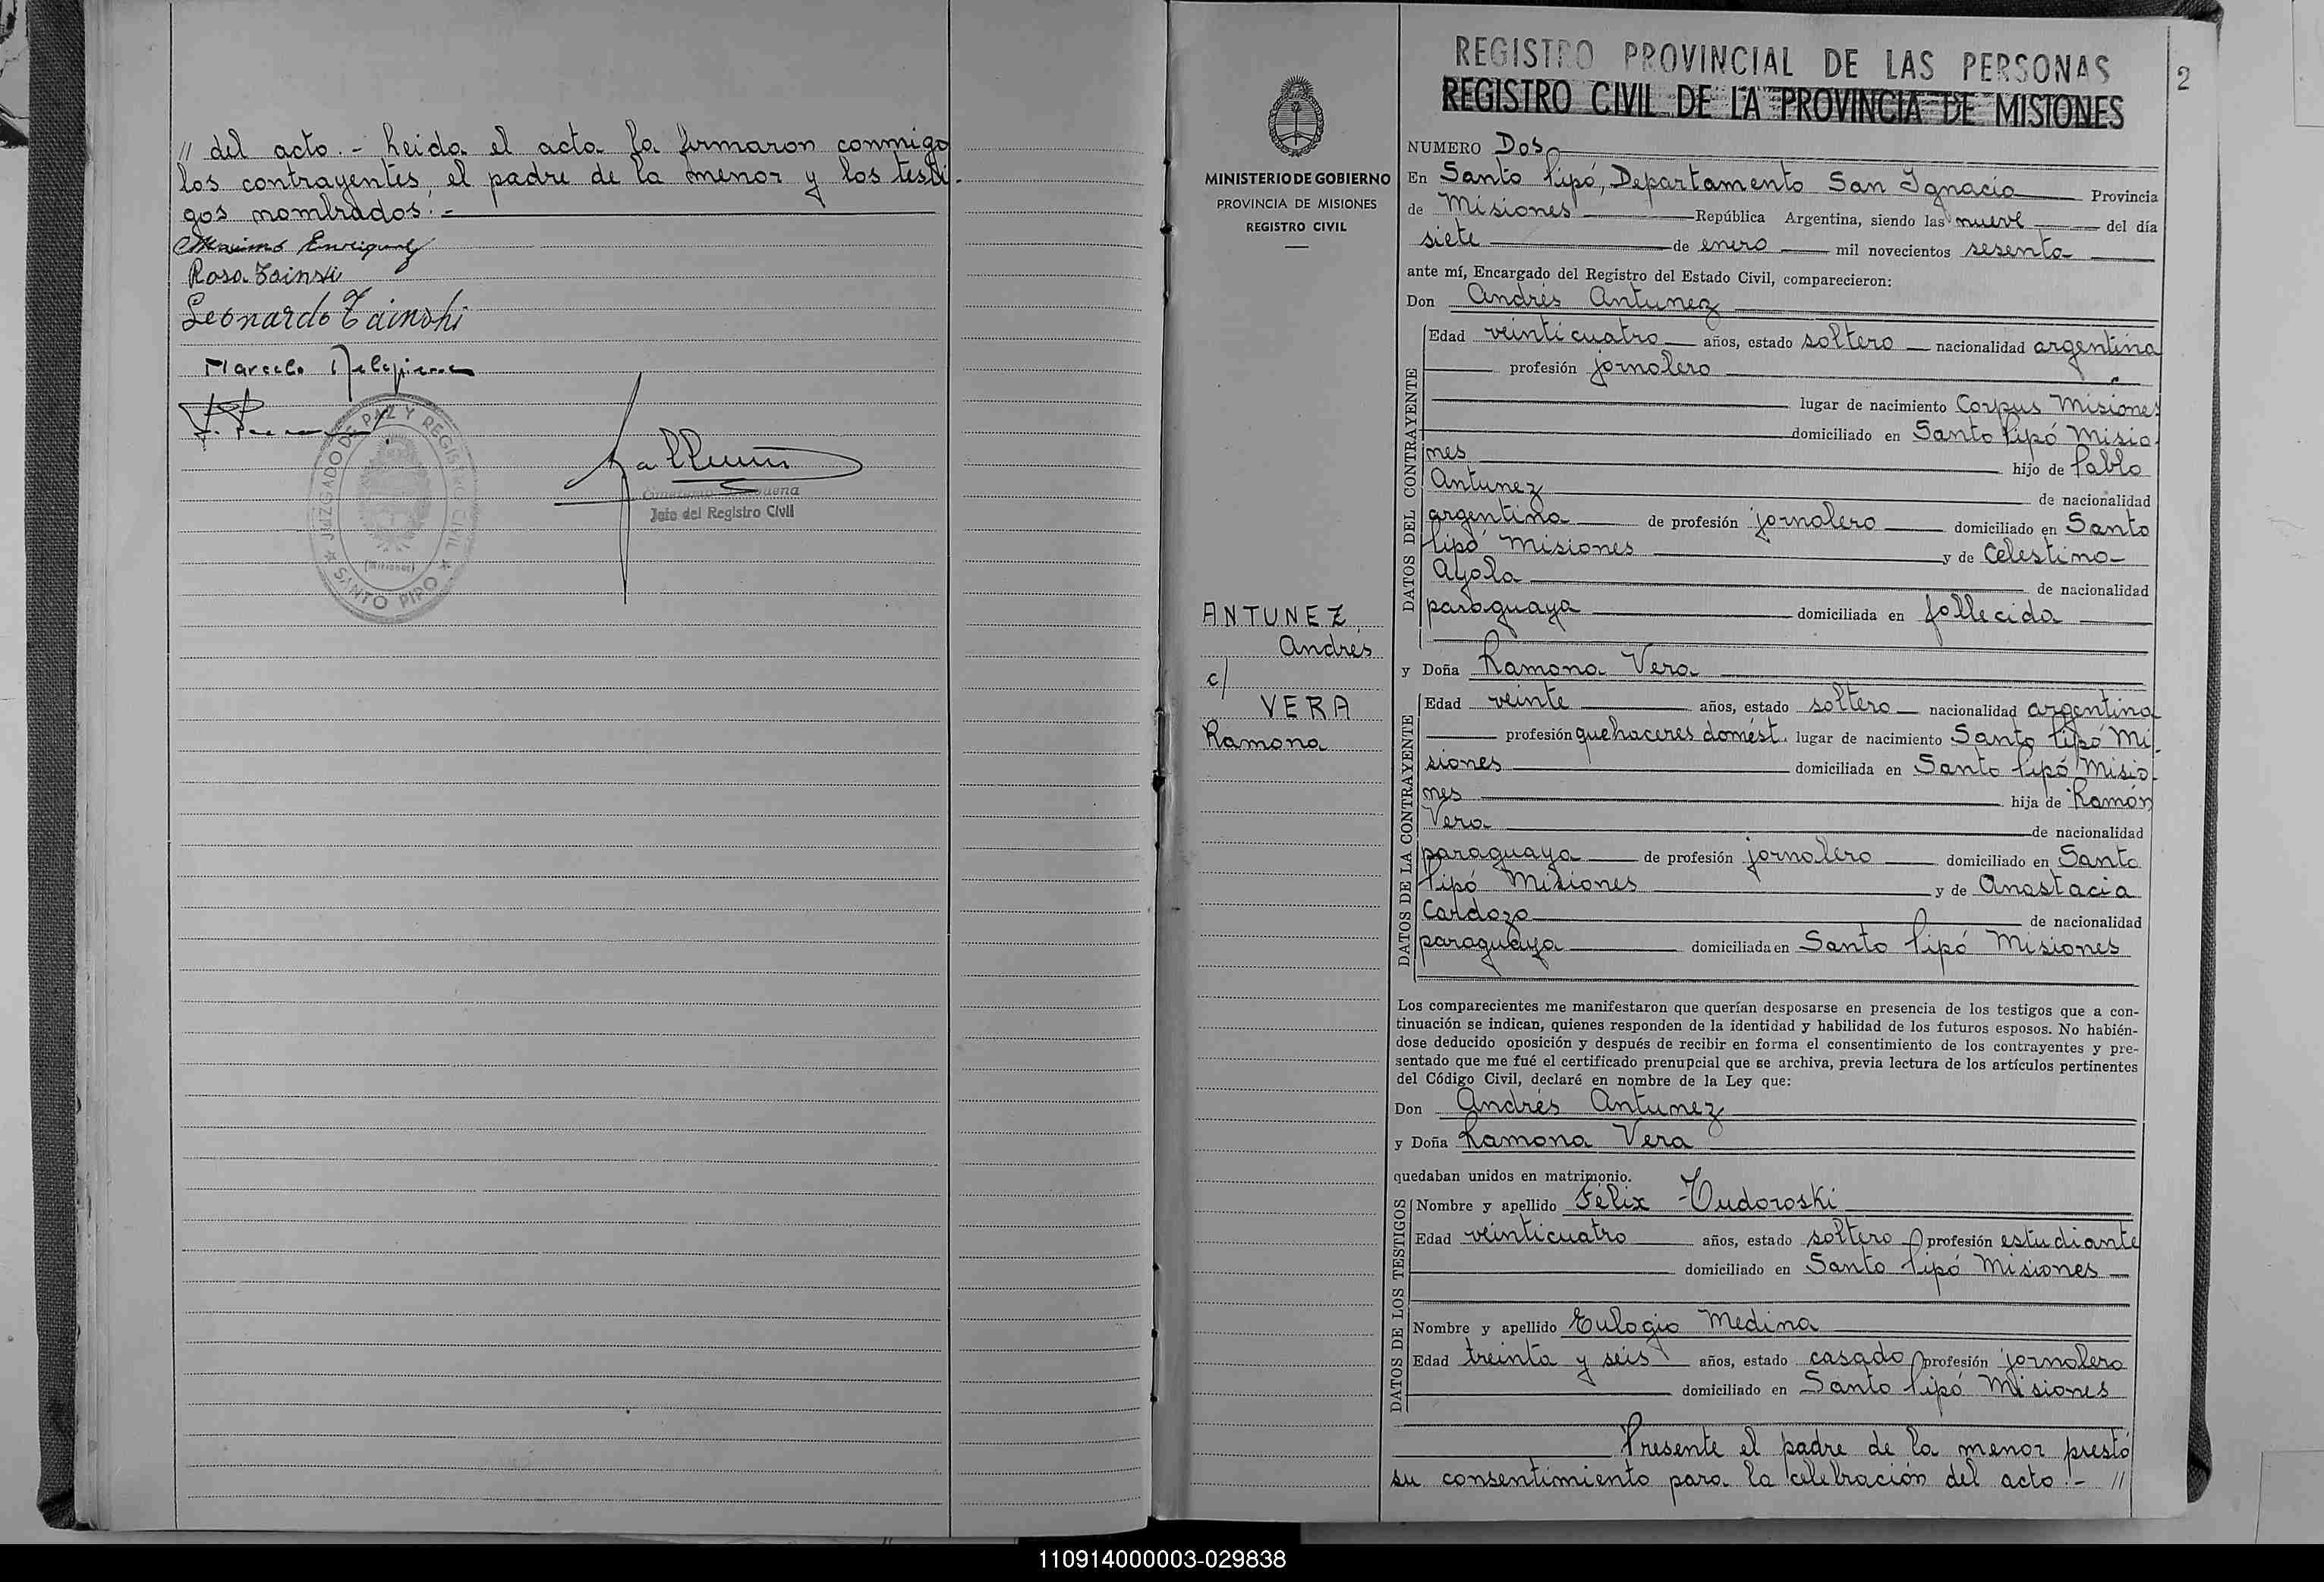 // del acto.- Leida el acta la firmaron conmigo
los contrayentes, el padre de la menor y los testi-
gos nombrados.-
Maximo Enriquez
Rosa Zainski
Leonardo Zainski
Marcelo
JUZGADO DE PAZ Y REGISTRO CIVIL
(Misiones)
SANTO PIPO
Jefe del Registro Civil
MINISTERIO DE GOBIERNO
PROVINCIA DE MISIONES
REGISTRO CIVIL
ANTUNEZ
Andrés
c/
VERA
Ramona
REGISTRO PROVINCIAL DE LAS PERSONAS
REGISTRO CIVIL DE LA PROVINCIA DE MISIONES
2
NUMERO Dos
En Santo Pipó, Departamento San Ignacio Provincia
de Misiones República Argentina, siendo las nueve del día
siete de enero mil novecientos sesenta
ante mí, Encargado del Registro del Estado Civil, comparecieron:
Don Andrés Antunez
DATOS DEL CONTRAYENTE
Edad veinticuatro años, estado soltero nacionalidad argentina
profesión jornalero
lugar de nacimiento Corpus Misiones
domiciliado en Santo Pipó Misio-
nes hijo de Pablo
Antunez de nacionalidad
argentina de profesión jornalero domiciliado en Santo
Pipó Misiones y de Celestina
Ayala de nacionalidad
paraguaya domiciliada en fallecida
y Doña Ramona Vera
DATOS DE LA CONTRAYENTE
Edad veinte años, estado soltera nacionalidad argentina
profesión quehaceres domést. lugar de nacimiento Santo Pipó Mi-
siones domiciliada en Santo Pipó Misio-
nes hija de Ramón
Vera de nacionalidad
paraguaya de profesión jornalero domiciliado en Santo
Pipó Misiones y de Anastacia
Cardozo de nacionalidad
paraguaya domiciliada en Santo Pipó Misiones
Los comparecientes me manifestaron que querían desposarse en presencia de los testigos que a con-
tinuación se indican, quienes responden de la identidad y habilidad de los futuros esposos. No habién-
dose deducido oposición y después de recibir en forma el consentimiento de los contrayentes y pre-
sentado que me fué el certificado prenupcial que se archiva, previa lectura de los artículos pertinentes
del Código Civil, declaré en nombre de la Ley que:
Don Andrés Antunez
y Doña Ramona Vera
quedaban unidos en matrimonio.
DATOS DE LOS TESTIGOS
Nombre y apellido Félix Tudoroski
Edad veinticuatro años, estado soltero profesión estudiante
domiciliado en Santo Pipó Misiones
Nombre y apellido Eulogio Medina
Edad treinta y seis años, estado casado profesión jornalero
domiciliado en Santo Pipó Misiones
Presente el padre de la menor prestó
su consentimiento para la celebración del acto.- //
110914000003-029838